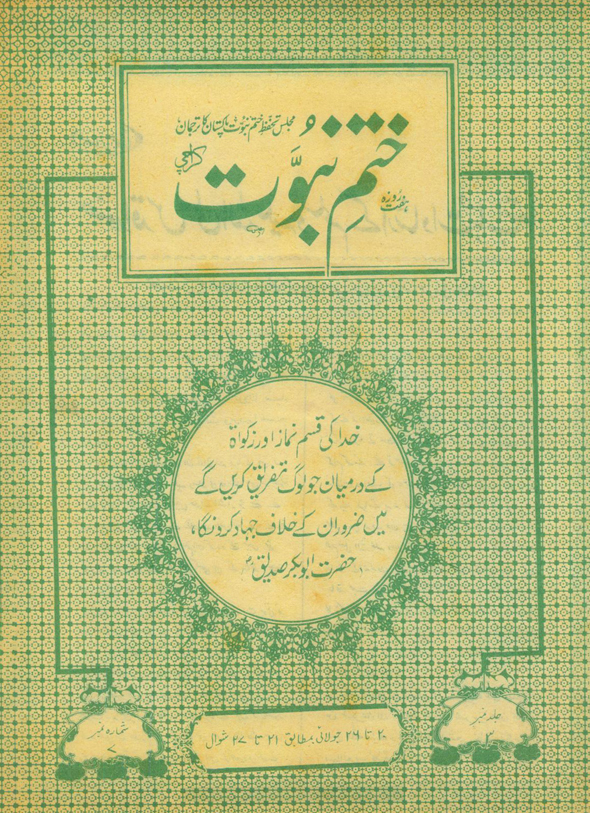 مجلس تحفظ ختم نبوت پاکستان کا ترجمان
ہفت روزہ
ختمِ نبوَّت
کراچی
خدا کی قسم نماز اور زکواۃ
کے درمیان جو لوگ تفریق کریں گے
میں ضرور ان کے خلاف جہاد کروں گا،
حضرت ابوبکر صدیقؓ
جلد نمبر
۳
۲۰ تا ۲۶ جولائی بمطابق ۲۱ تا ۲۷ شوال
شمارہ نمبر
۷